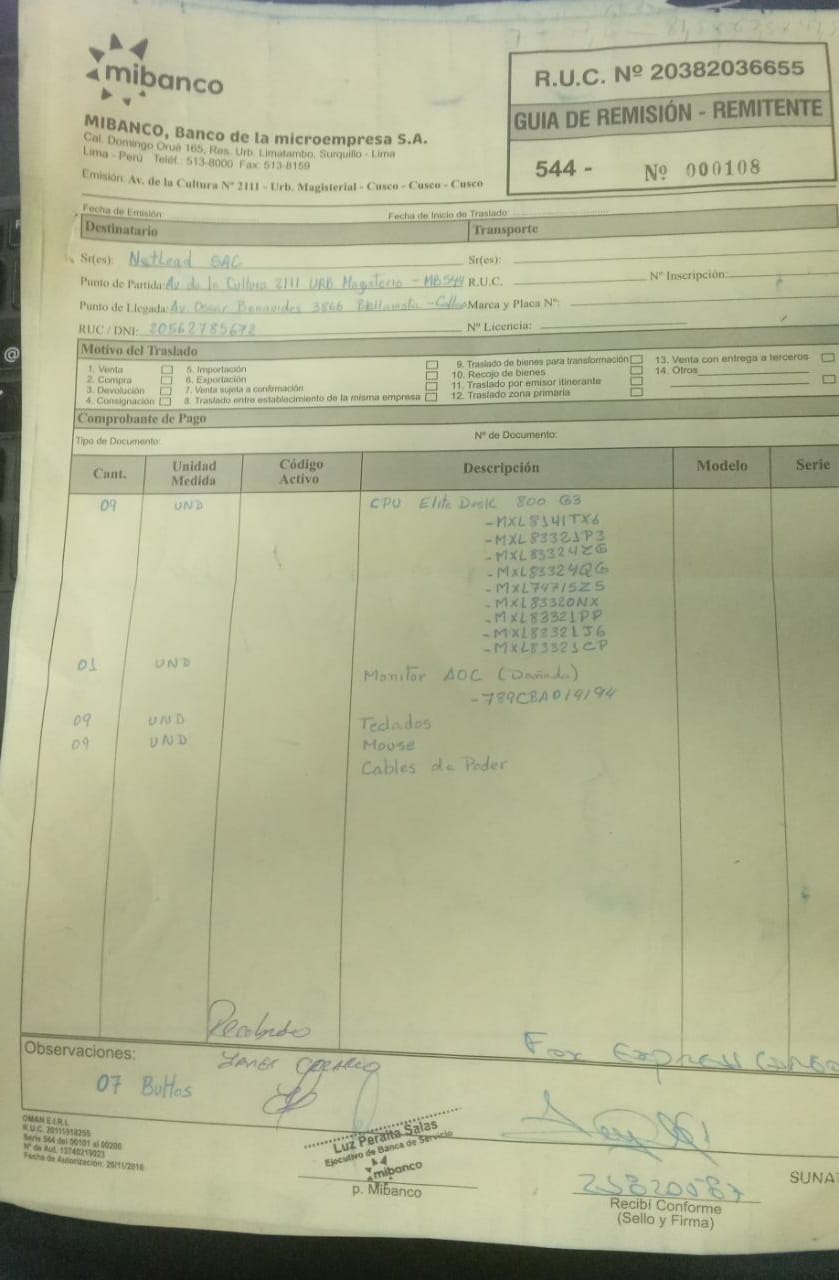 mibanco
R.U.C. Nº 20382036655
GUIA DE REMISIÓN - REMITENTE
544 - Nº 000108
MIBANCO, Banco de la microempresa S.A.
Cal. Domingo Orué 165, Res. Urb. Limatambo, Surquillo - Lima
Lima - Perú Teléf.: 513-8000 Fax: 513-8159
Emisión: Av. de la Cultura Nº 2111 - Urb. Magisterial - Cusco - Cusco - Cusco
Fecha de Emisión: Fecha de Inicio de Traslado:
Destinatario Transporte
Sr(es): NetLead SAC Sr(es):
Punto de Partida: Av de la Cultura 2111 URB Magisterio - MB544 R.U.C. Nº Inscripción:
Punto de Llegada: Av. Oscar Benavides 3866 Bellavista - Callao Marca y Placa Nº:
RUC / DNI: 20562785672 Nº Licencia:
Motivo del Traslado
1. Venta 5. Importación 9. Traslado de bienes para transformación 13. Venta con entrega a terceros
2. Compra 6. Exportación 10. Recojo de bienes 14. Otros
3. Devolución 7. Venta sujeta a confirmación 11. Traslado por emisor itinerante
4. Consignación 8. Traslado entre establecimiento de la misma empresa 12. Traslado zona primaria
Comprobante de Pago
Tipo de Documento: Nº de Documento:
Cant. Unidad Medida Código Activo Descripción Modelo Serie
09 UND CPU Elite Desk 800 G3
-MXL8141TX6
-MXL83321P3
-MXL83324ZG
-MXL83324QG
-MXL74715Z5
-MXL83320NX
-MXL83321PP
-MXL83321J6
-MXL83321CP
01 UND Monitor AOC (Dañado)
-789CBAD14194
09 UND Teclados
09 UND Mouse
Cables de Poder
Observaciones:
07 Bultos
Fox Express
OMAN E.I.R.L.
R.U.C. 20111518255
Serie 544 del 00101 al 00200
Nº de Aut. 13740219023
Fecha de Autorización: 26/11/2016
Luz Peralta Salas
Ejecutivo de Banca de Servicio
mibanco
p. Mibanco
25820087
Recibí Conforme
(Sello y Firma)
SUNAT